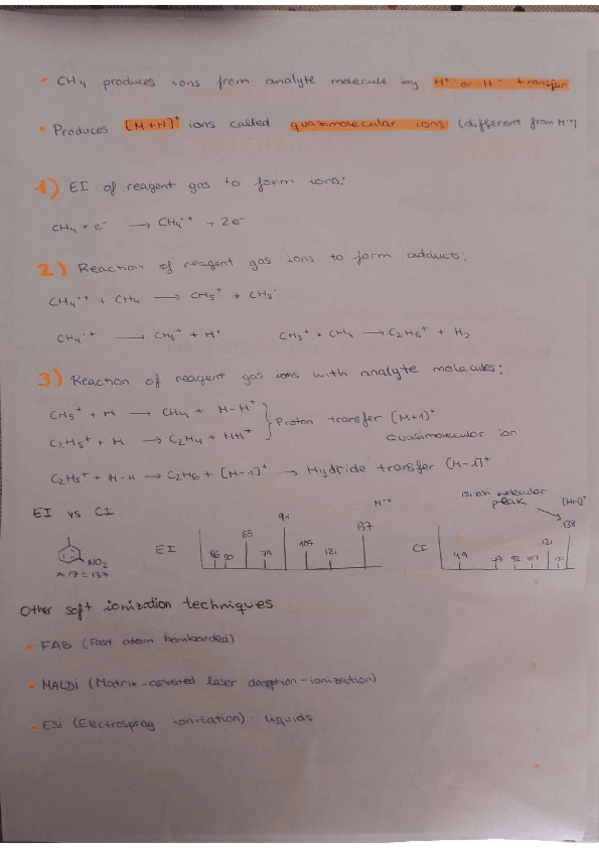 • CH4 produces ions from analyte molecule by H+ or H- transfer
• Produces [M+H]+ ions called quasimolecular ions (different from M·+)
1) EI of reagent gas to form ions:
CH4 + e- → CH4·+ + 2e-
2) Reaction of reagent gas ions to form adducts:
CH4·+ + CH4 → CH5+ + CH3·
CH4·+ → CH3+ + H· CH3+ + CH4 → C2H5+ + H2
3) Reaction of reagent gas ions with analyte molecules:
CH5+ + M → CH4 + M-H+ } Proton transfer [M+1]+
C2H5+ + M → C2H4 + MH+ quasimolecular ion
C2H5+ + M-H → C2H6 + [M-1]+ → Hydride transfer (M-1)+
EI vs CI
NO2
m/z=137
EI 50 65 79 91 107 121 137 M·+
CI 49 77 92 107 121 138 molecular peak
Other soft ionization techniques
• FAB (Fast atom bombarded)
• MALDi (Matrix-assisted laser desorption-ionization)
• ESi (Electrospray ionization): liquids